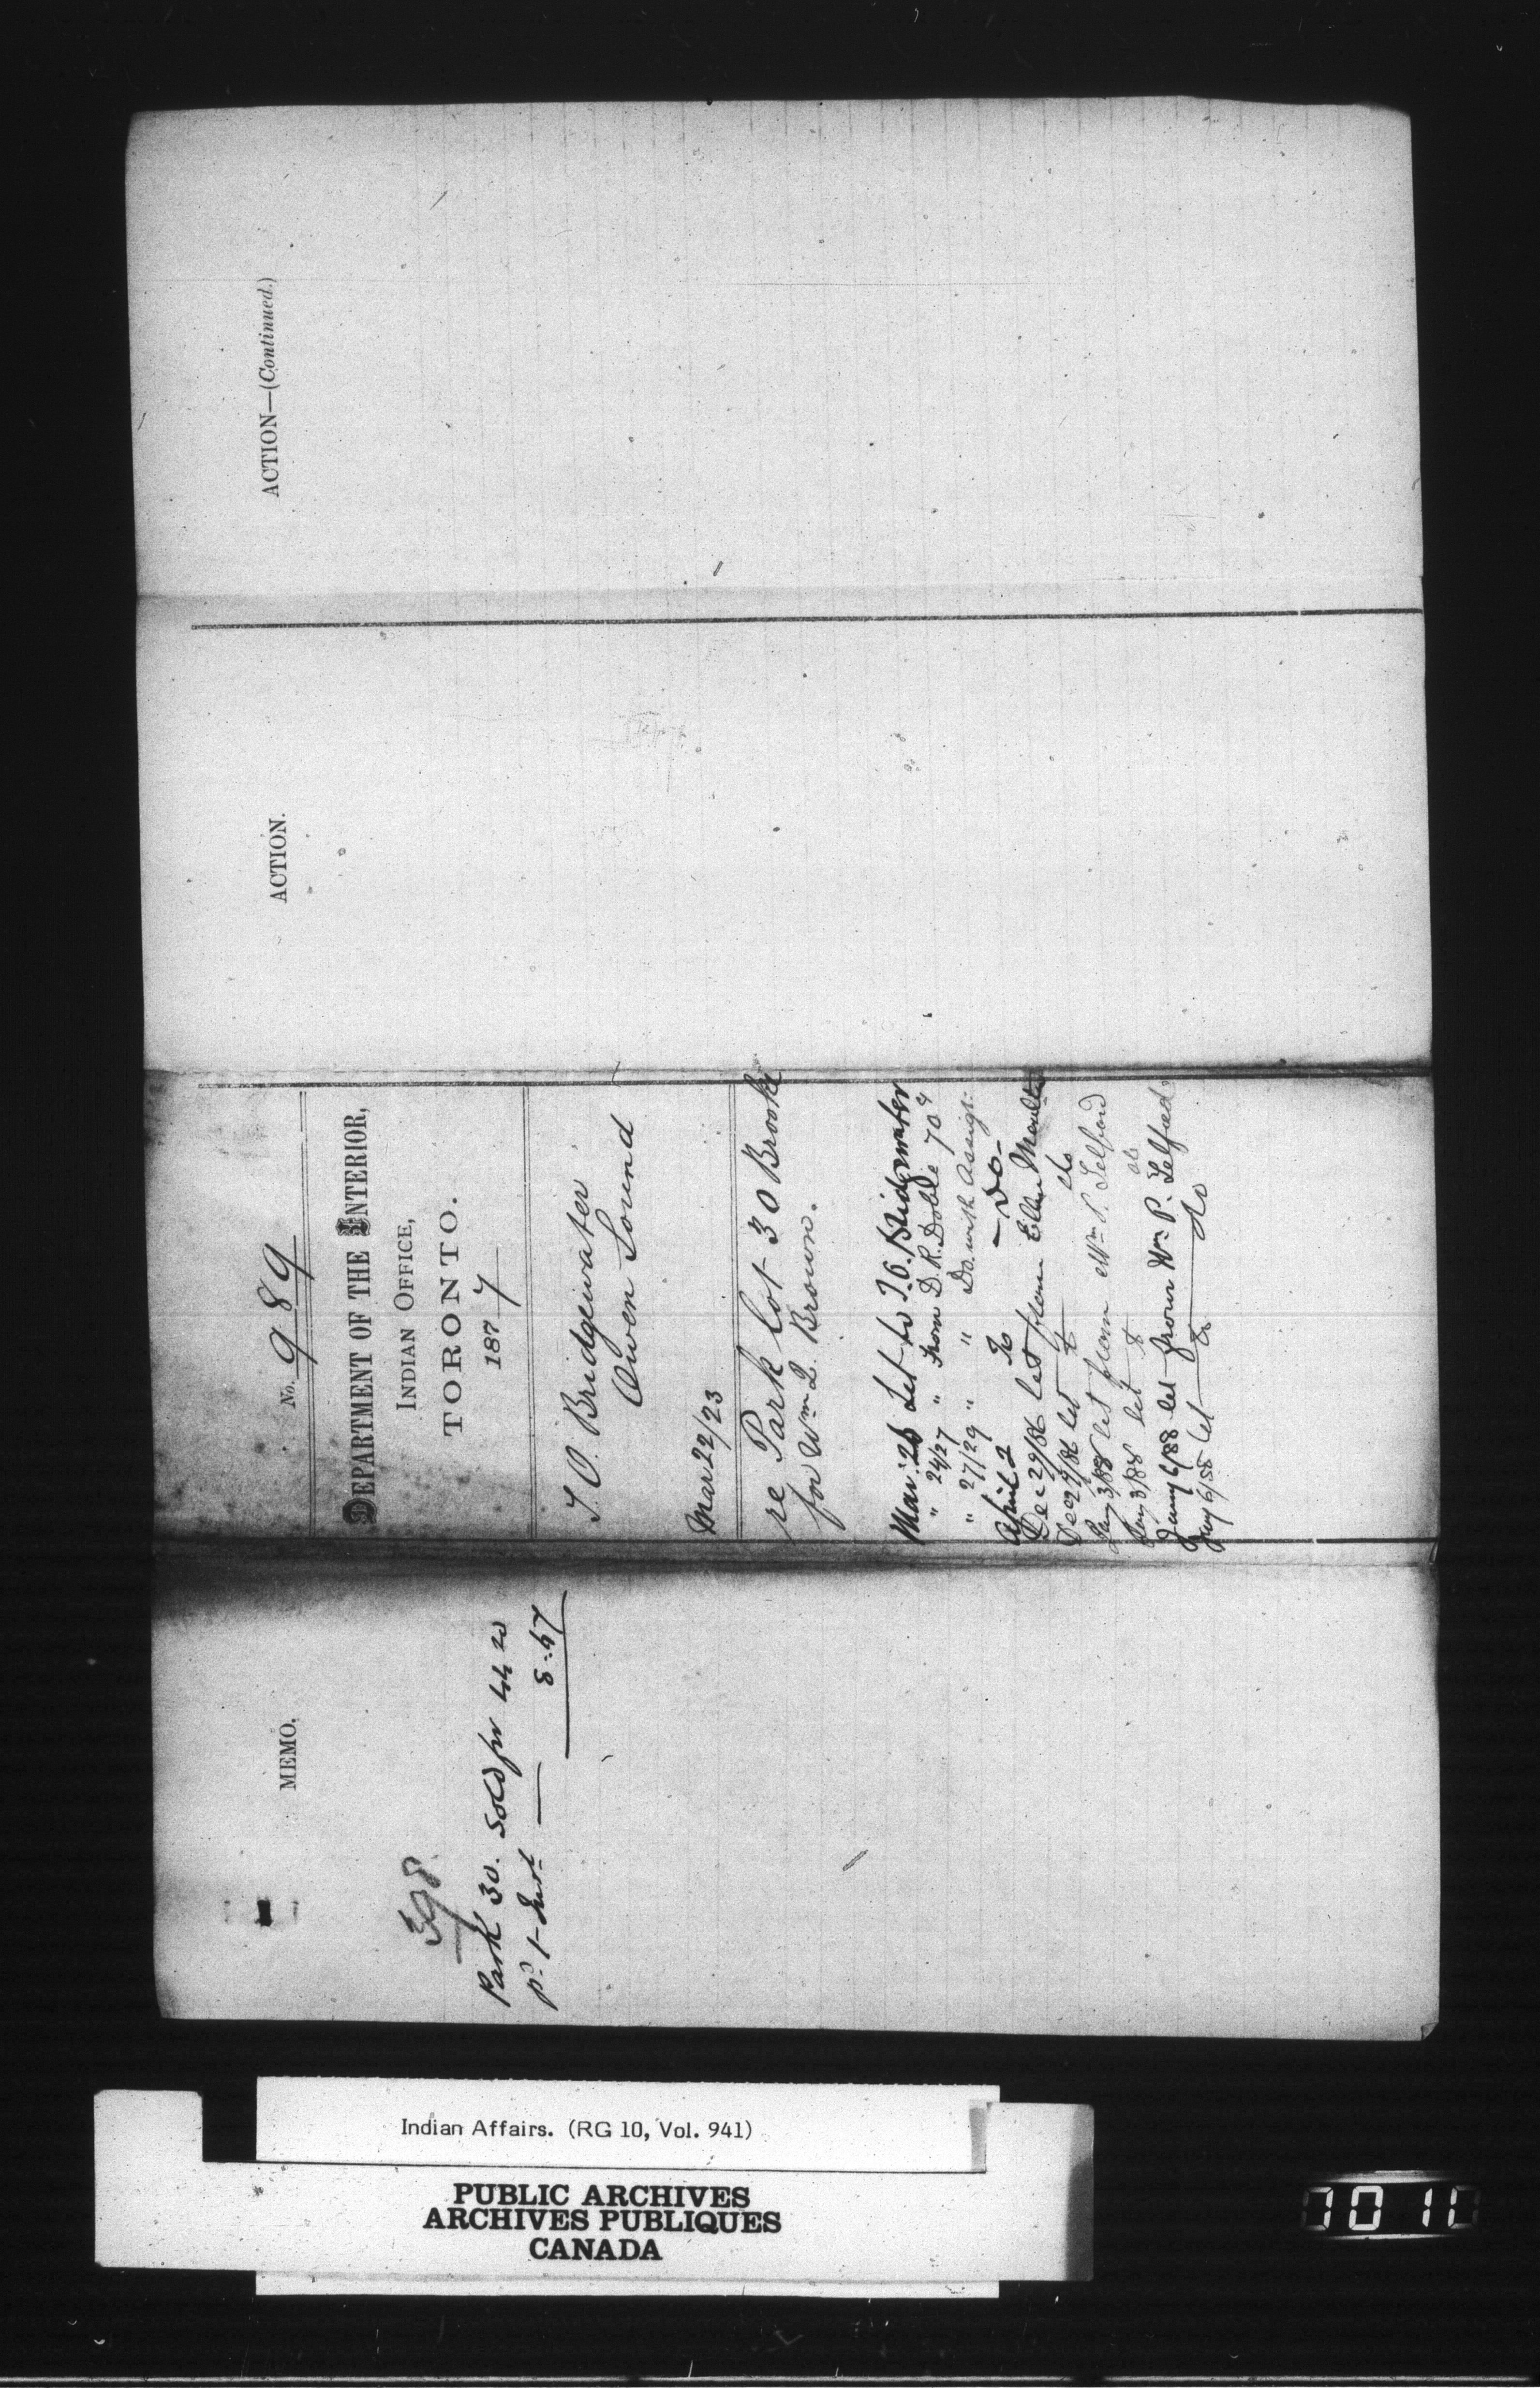 MEMO.
398
Park 30. Sold for 44 20
pd 1 Inst — 8.47
No. 989
DEPARTMENT OF THE INTERIOR,
INDIAN OFFICE,
TORONTO.
1877
T. O. Bridgewater
Owen Sound
Mar 22/23
re Park Lot 30 Brooke
for Wm L. Brown.
Mar. 26 Let to T. O. Bridgewater
" 24/27 " From D. R. Doble
" 27/29 " " Do with Assigt.
April 2 To — Do —
Dec 29/86 let from Ellen
Dec 29/86 let to do
Jany 3/88 let from Wm P. Telford
Jany 3/88 let to do
Jany 6/88 let from Wm P. Telford
Jany 6/88 let to do
ACTION.
ACTION—(Continued.)
Indian Affairs. (RG 10, Vol. 941)
PUBLIC ARCHIVES
ARCHIVES PUBLIQUES
CANADA